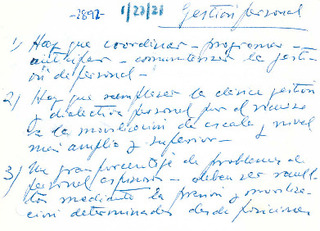 -2892- 1/22/21 Gestión personal
1) Hay que coordinar - programar -
anticipar - comunizar la gesti-
ón de personal -
2) Hay que reemplazar la clásica gestión
y dialéctica personal por el recurso
a la movilización de escala y nivel
más amplio y superior -
3) Un gran porcentaje de problemas de
personal deben ser resuel-
tos mediante la presión y moviliza-
ción determinadas desde posiciones